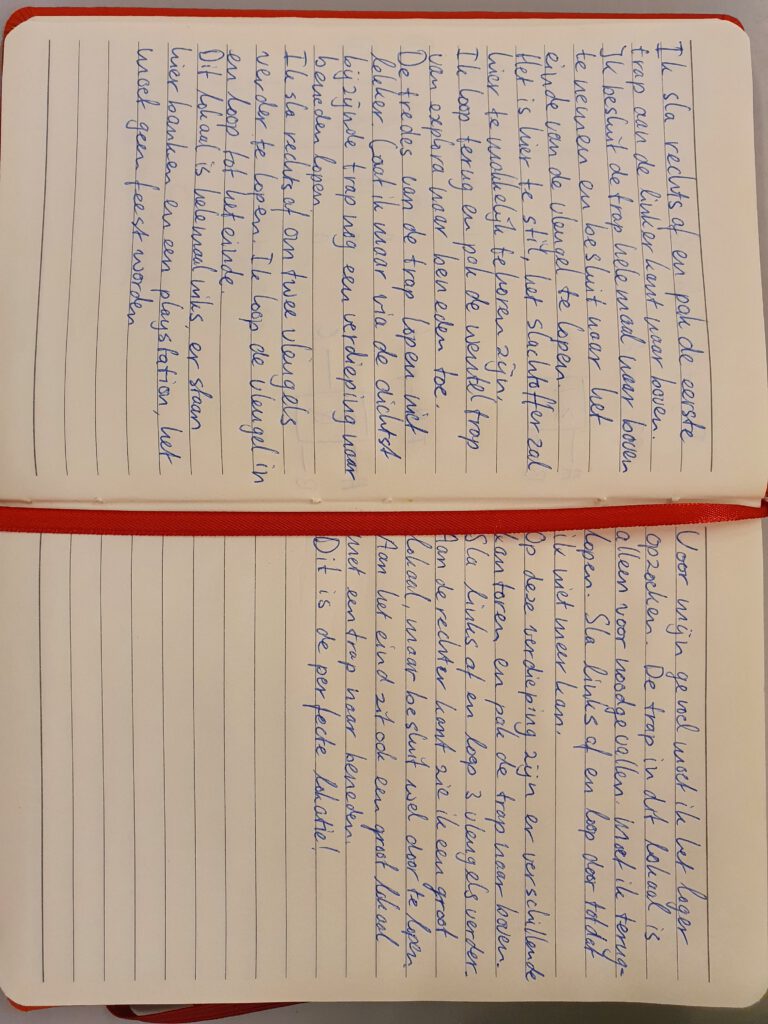 Ik sla rechts af en pak de eerste
trap aan de linker kant naar boven.
Ik besluit de trap helemaal naar boven
te nemen en besluit naar het
einde van de vleugel te lopen.
Het is hier te stil, het slachtoffer zal
hier te makkelijk te horen zijn.
Ik loop terug en pak de wentel trap
van expira naar beneden toe.
De tredes van de trap lopen niet
lekker laat ik maar via de dichtst
bijzijnde trap nog een verdieping naar
beneden lopen.
Ik sla rechts af om twee vleugels
verder te lopen. Ik loop de vleugel in
en loop tot het einde.
Dit lokaal is helemaal niks, er staan
hier banken en een playstation, het
moet geen feest worden
Voor mijn gevoel moet ik het lager
opzoeken. De trap in dit lokaal is
alleen voor noodgevallen. moet ik terug-
lopen. Sla links af en loop door tot dat
ik niet meer kan.
Op deze verdieping zijn er verschillende
kantoren en pak de trap naar boven.
Sla links af en loop 3 vleugels verder.
Aan de rechter kant zie ik een groot
lokaal, maar besluit wel door te lopen
Aan het eind zit ook een groot lokaal
met een trap naar beneden.
Dit is de perfecte lokatie!